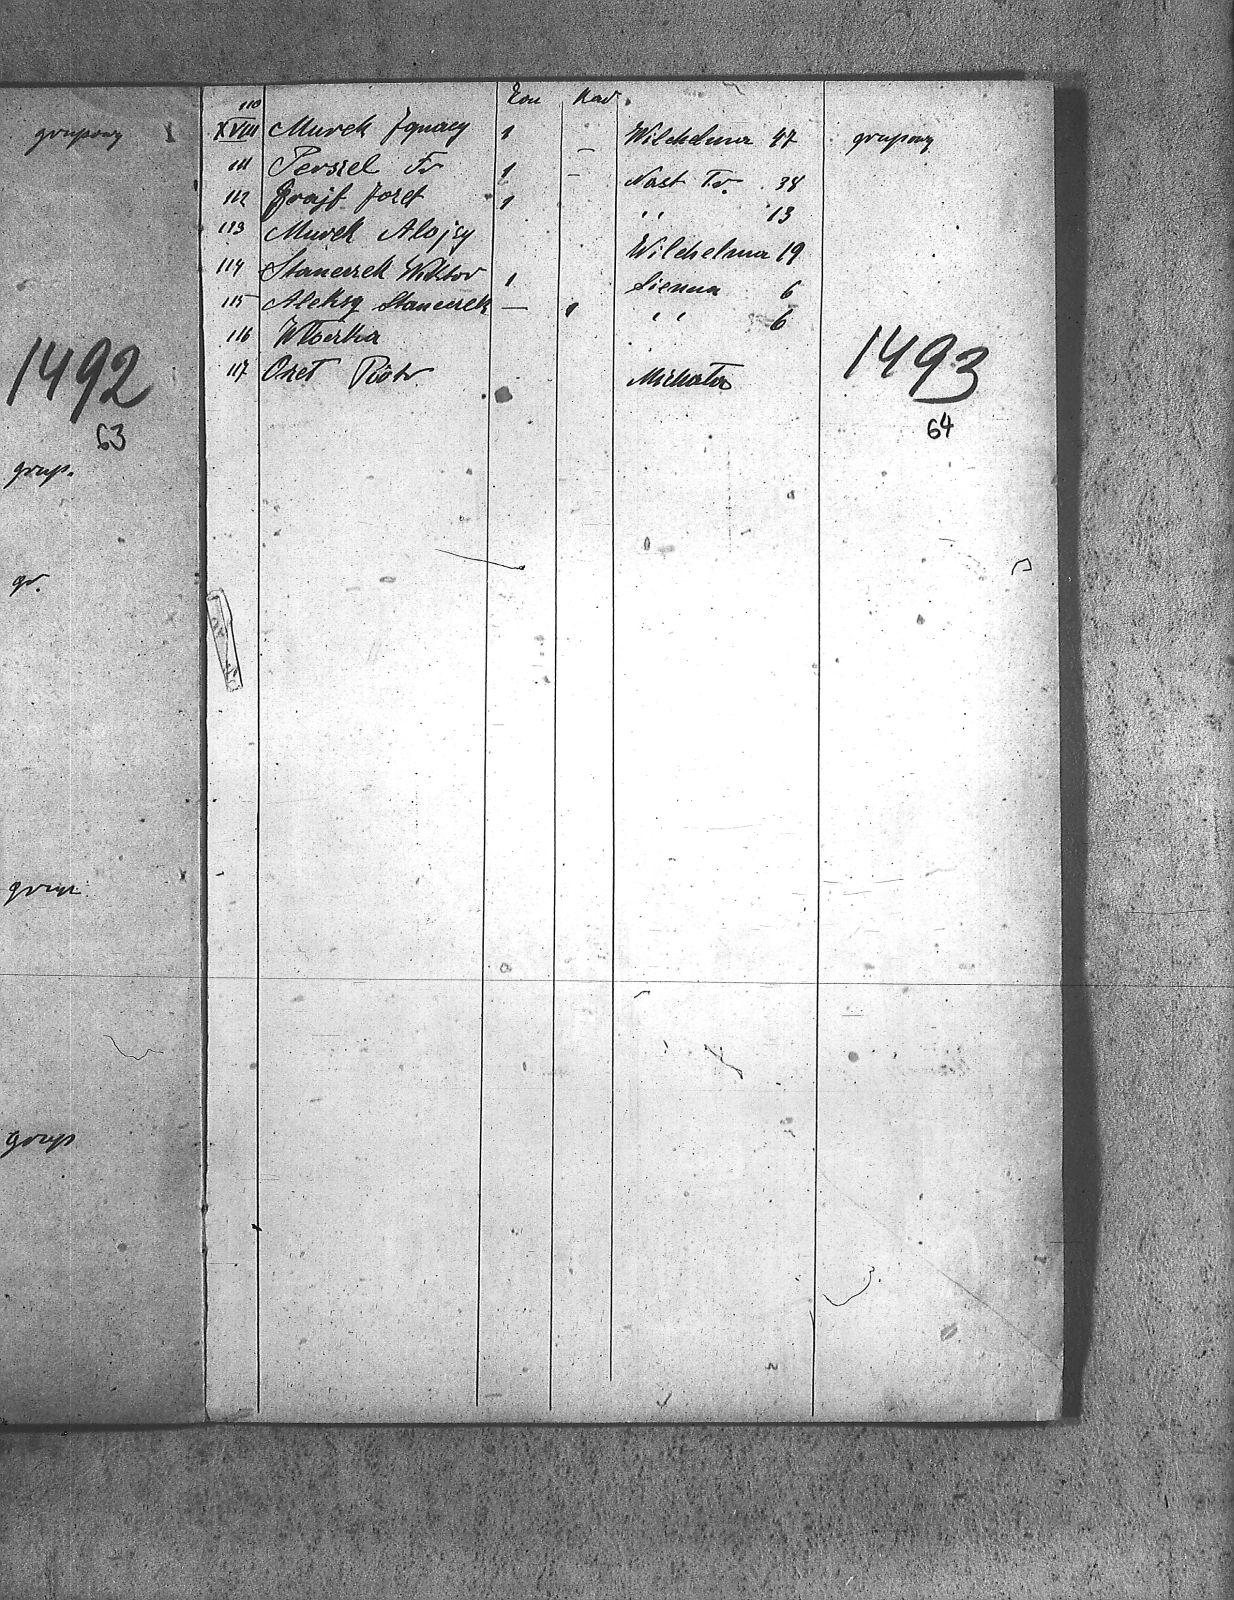 grupowy
1492
63
grup.
gr.
grup.
grup
110 Kon Kad.
XVIII Murek Ignacy 1 — Wilchelma 47 grupowy
111 Persiel Fr 1 — Nast Tr. 38
112 Grajf Jozef 1 " 13
113 Murek Alojzy Wilchelma 19
114 Staneczek Wiktor 1 Sienna 6
115 Aleksy Staneczek — 1 " 6
116 Wloczka
117 Ozet Piotr Michała
1493
64